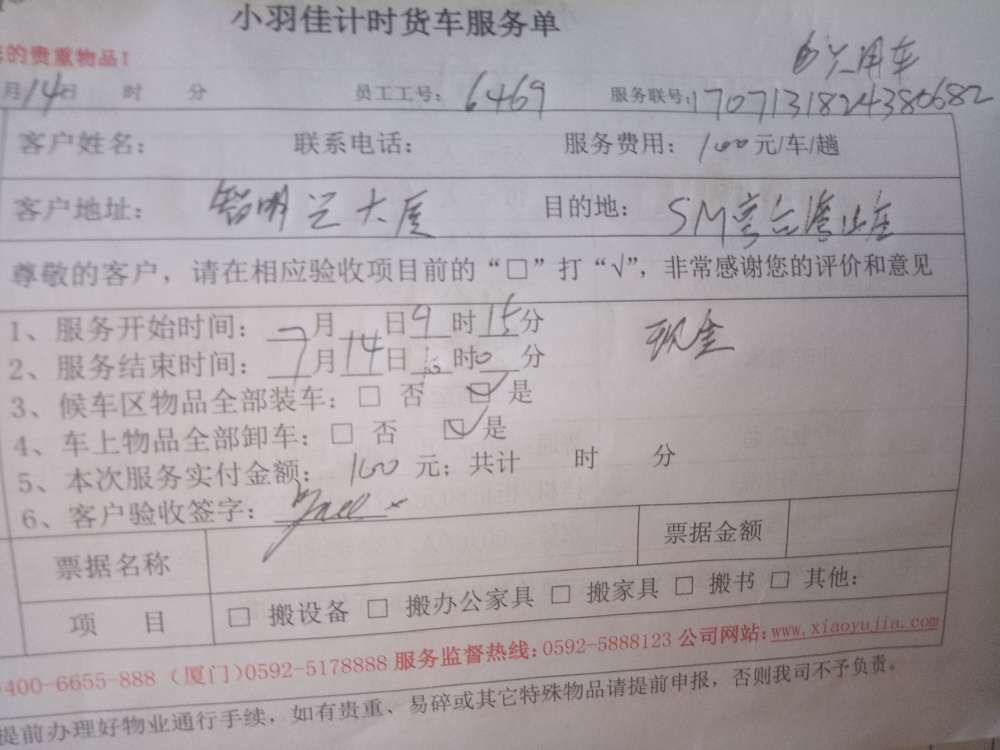 小羽佳计时货车服务单
的贵重物品！
用车
月14日 时 分 员工工号：6469 服务联号：1707131824380682
客户姓名： 联系电话： 服务费用：100元/车/趟
客户地址：智明兰大厦 目的地：SM
尊敬的客户，请在相应验收项目前的“□”打“√”，非常感谢您的评价和意见
1、服务开始时间：7月14日9时15分 现金
2、服务结束时间：7月14日10时0分
3、候车区物品全部装车：□ 否 ☑是
4、车上物品全部卸车：□ 否 ☑是
5、本次服务实付金额：100元；共计 时 分
6、客户验收签字：
票据名称 票据金额
项 目 □ 搬设备 □ 搬办公家具 □ 搬家具 □ 搬书 □ 其他：
400-6655-888（厦门)0592-5178888 服务监督热线：0592-5888123 公司网站：www.xiaoyujia.com
提前办理好物业通行手续，如有贵重、易碎或其它特殊物品请提前申报，否则我司不予负责。